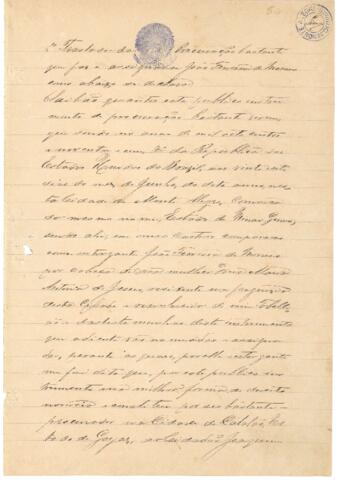 1º Traslado de Procuração bastante
que faz e assigna João Ferreira de
como abaixo se declara
Saibão quantos este publico instru
mento de procuração bastante virem
que sendo no anno de mil oito centos
e noventa e um, 3º da Republica dos
Estados Unidos do Brazil, aos vinte e sete
dias do mez de Junho, do dito anno, nes
ta Cidade de Monte Alegre, Comarca
do mesmo nome, Estado de Minas Geraes,
sendo ahi, em meu Cartorio compareceo
como outorgante João Ferreira de
por cabeça de sua mulher Dona Maria
Antonia de Jesus, residente na freguezia
desta Cidade e reconhecido de mim Tabelli
ão e das testemunhas deste instrumento
que adiante vão nomeadas e assigna
das, perante as quaes, por elle outorgante
me foi dito que, por este publico ins
trumento e na milhor forma de direito
nomeia e constitue por seu bastante
procurador na Cidade de Catalão, Es
tado de Goyaz, ao Cidadão Joaquim